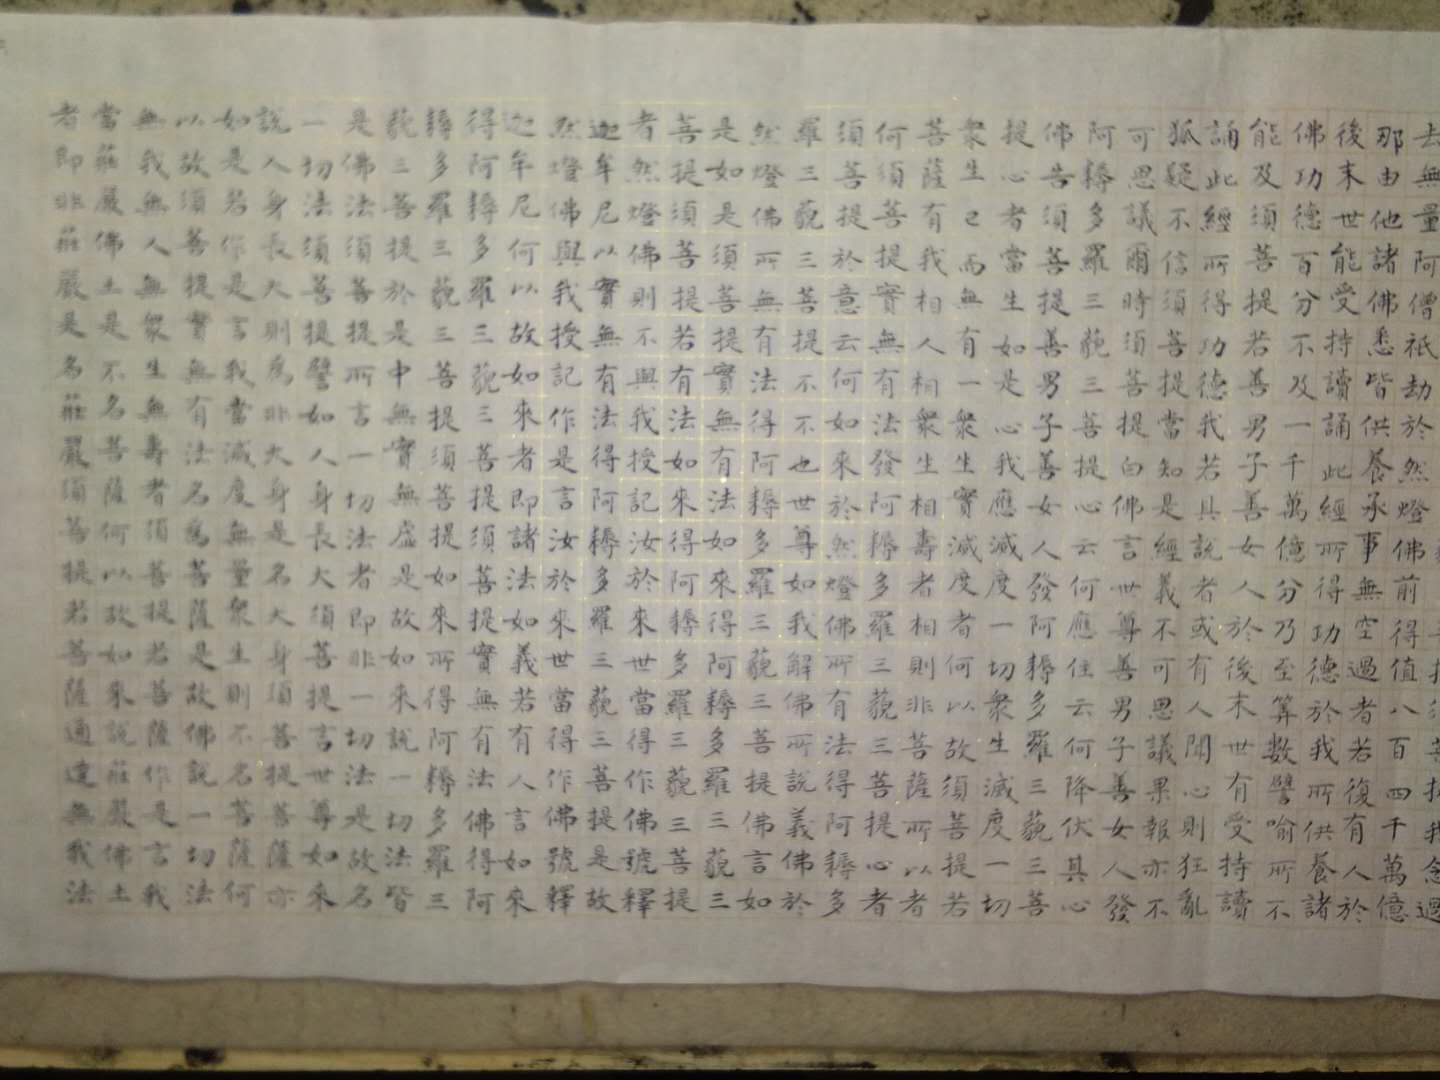 我念過
去無量阿僧祇劫於然燈佛前得值八百四千萬億
那由他諸佛悉皆供養承事無空過者若復有人於
後末世能受持讀誦此經所得功德於我所供養諸
佛功德百分不及一千萬億分乃至算數譬喻所不
能及須菩提若善男子善女人於後末世有受持讀
誦此經所得功德我若具說者或有人聞心則狂亂
狐疑不信須菩提當知是經義不可思議果報亦不
可思議爾時須菩提白佛言世尊善男子善女人發
阿耨多羅三藐三菩提心云何應住云何降伏其心
佛告須菩提善男子善女人發阿耨多羅三藐三菩
提心者當生如是心我應滅度一切衆生滅度一切
衆生已而無有一衆生實滅度者何以故須菩提若
菩薩有我相人相衆生相壽者相則非菩薩所以者
何須菩提實無有法發阿耨多羅三藐三菩提心者
須菩提於意云何如來於然燈佛所有法得阿耨多
羅三藐三菩提不不也世尊如我解佛所說義佛於
然燈佛所無有法得阿耨多羅三藐三菩提佛言如
是如是須菩提實無有法如來得阿耨多羅三藐三
菩提須菩提若有法如來得阿耨多羅三藐三菩提
者然燈佛則不與我授記汝於來世當得作佛號釋
迦牟尼以實無有法得阿耨多羅三藐三菩提是故
然燈佛與我授記作是言汝於來世當得作佛號釋
迦牟尼何以故如來者即諸法如義若有人言如來
得阿耨多羅三藐三菩提須菩提實無有法佛得阿
耨多羅三藐三菩提須菩提如來所得阿耨多羅三
藐三菩提於是中無實無虛是故如來說一切法皆
是佛法須菩提所言一切法者即非一切法是故名
一切法須菩提譬如人身長大須菩提言世尊如來
說人身長大則為非大身是名大身須菩提菩薩亦
如是若作是言我當滅度無量衆生則不名菩薩何
以故須菩提實無有法名為菩薩是故佛說一切法
無我無人無衆生無壽者須菩提若菩薩作是言我
當莊嚴佛土是不名菩薩何以故如來說莊嚴佛土
者即非莊嚴是名莊嚴須菩提若菩薩通達無我法